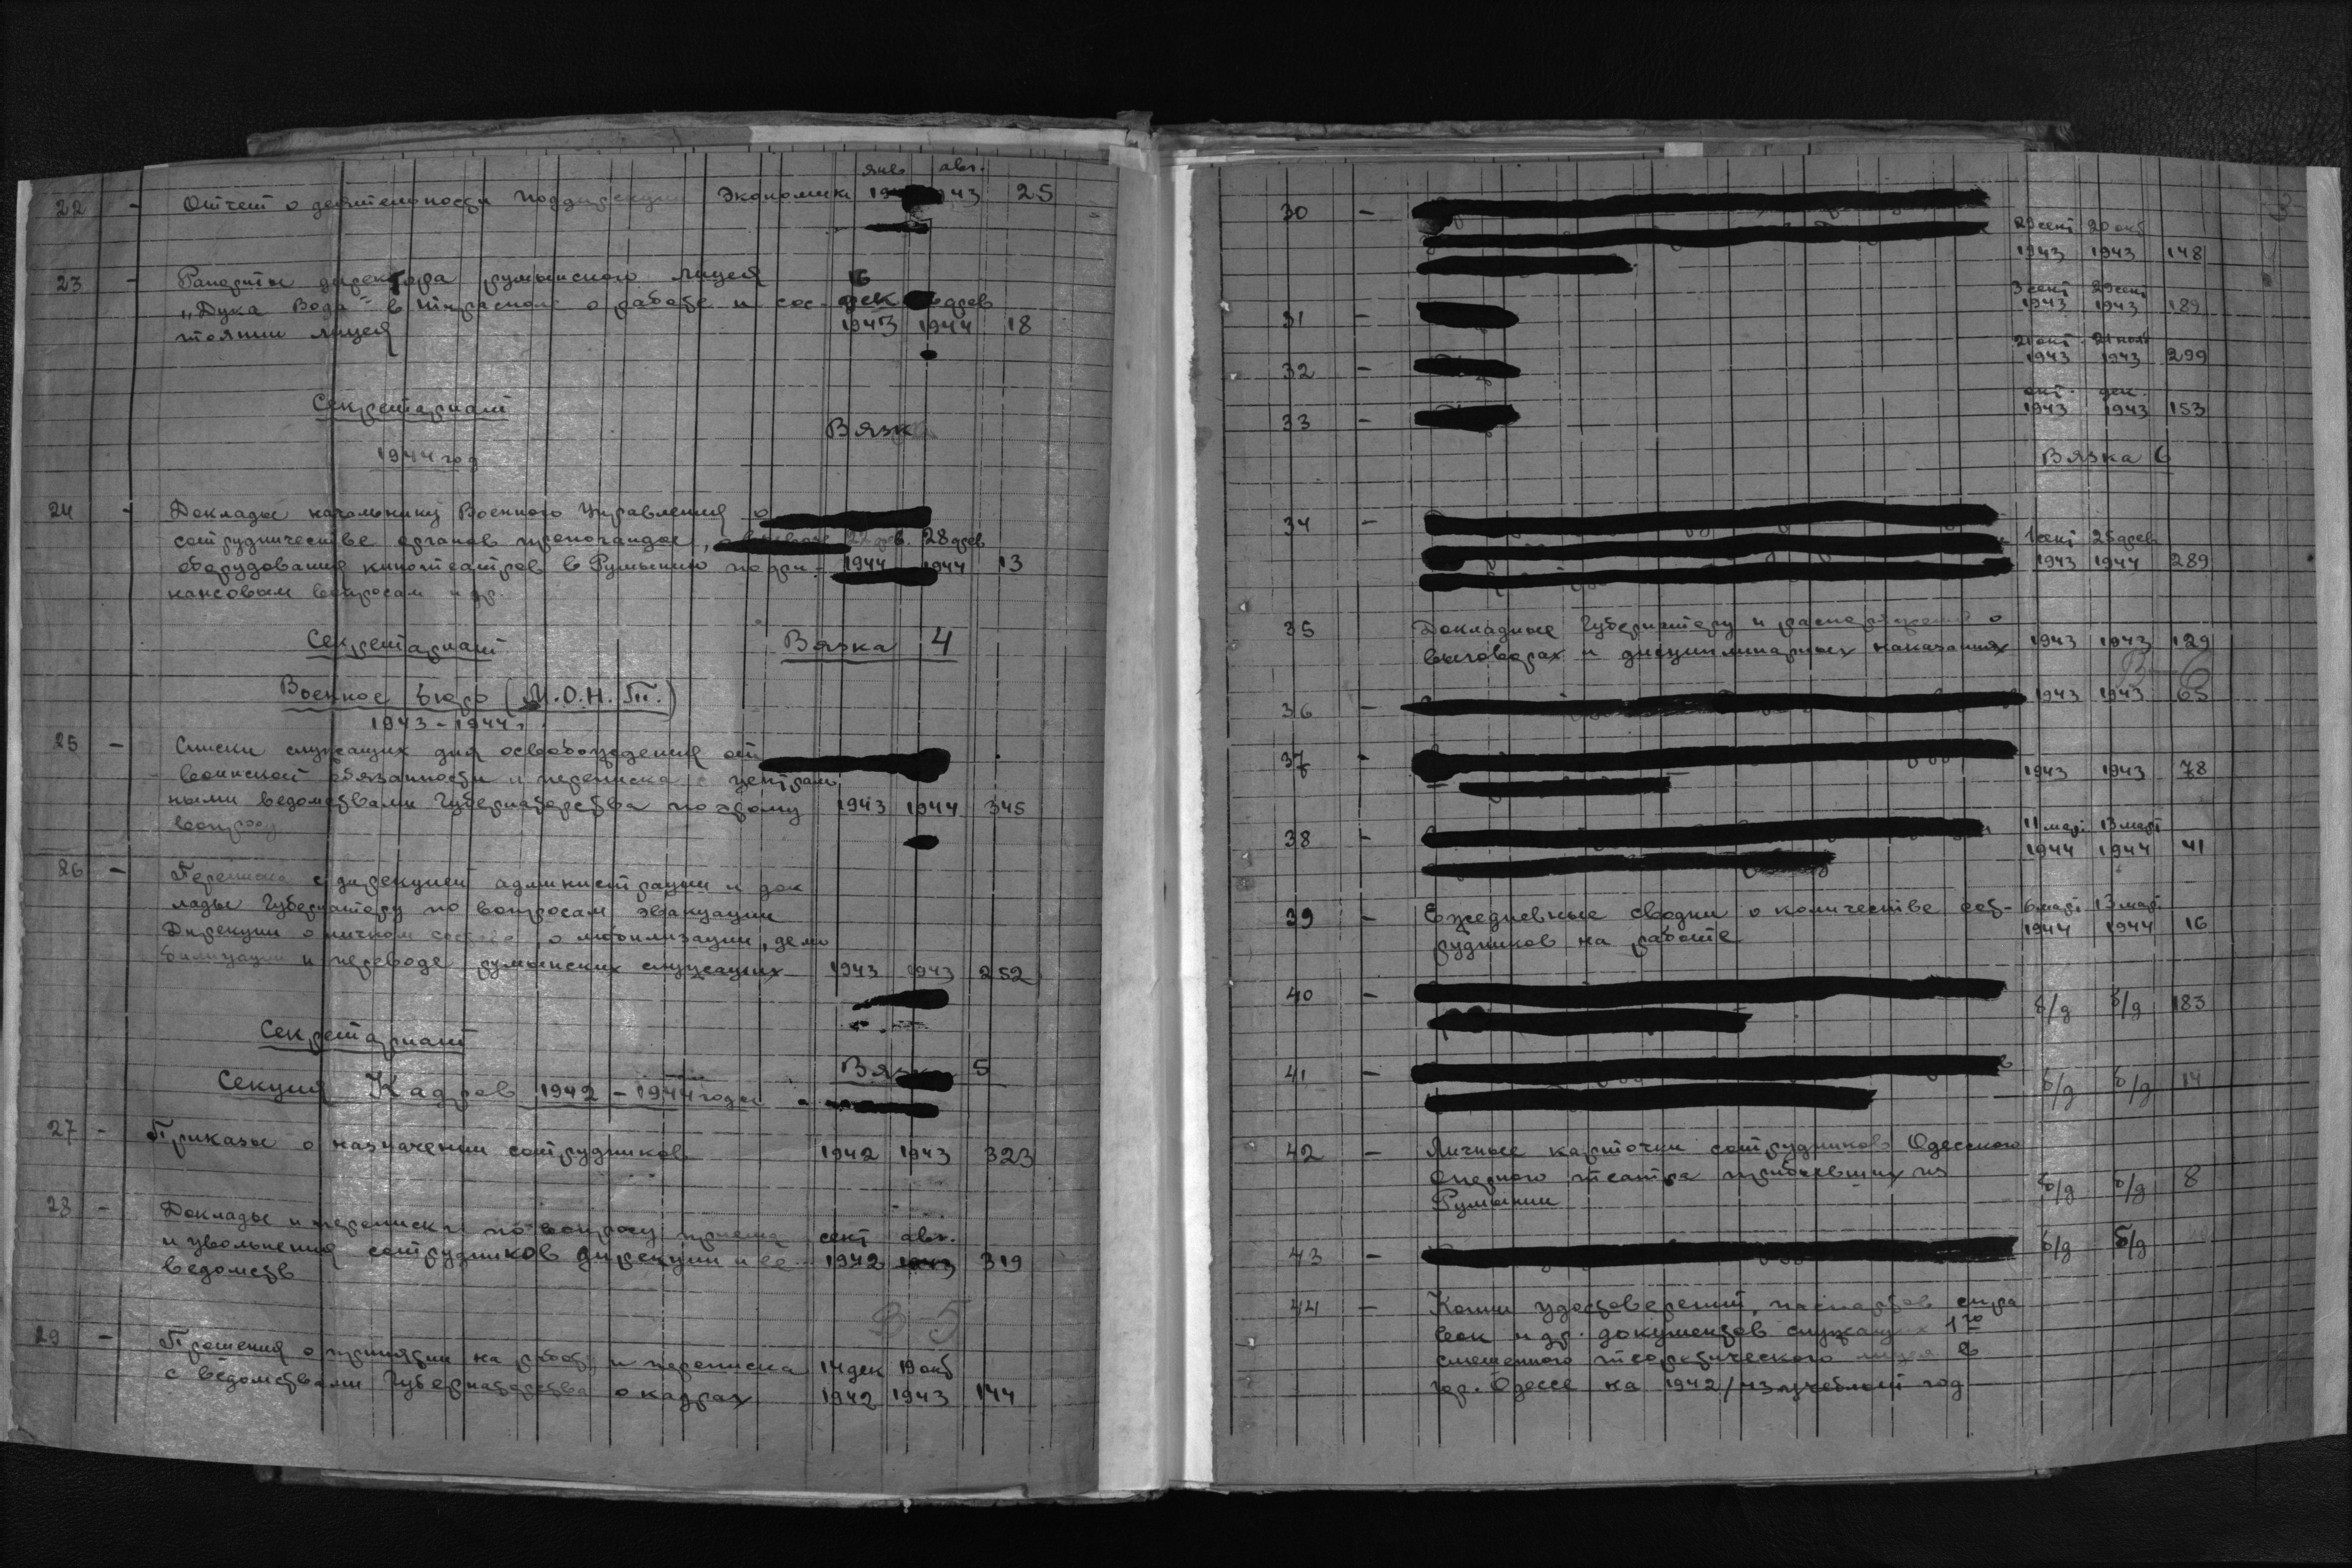 янв. авг.
22 - Отчет о деятельности поддирекции Экономики 1943 25
23 - Рапорты директора румынского лицея 16
„Дука Водэ" в Тирасполе о работе и сос- дек фев
тоянии лицея 1943 1944 18
Секретариат
Вязка
1944 год
24 - Доклады начальнику Военного Управления о
сотрудничестве органов пропаганды, о вывозе 22 фев. 28 фев
оборудования кинотеатров в Румынию по фи- 1944 1944 13
нансовым вопросам и др.
Секретариат Вязка 4
Военное Бюро (М.О.Н.Т.)
1943-1944 г.
25 - Списки служащих для освобождения от
воинской обязанности и переписка с централь
ными ведомствами Губернаторства по этому 1943 1944 345
вопросу
26 - Переписка с дирекцией администрации и док
лады Губернатору по вопросам эвакуации
Дирекции о личном составе, о мобилизации, демо
билизации и переводе румынских служащих 1943 1943 252
Секретариат
Вязка 5
Секция Кадров 1942-1944 годы
27 - Приказы о назначении сотрудников 1942 1943 323
28 - Доклады и переписка по вопросу приема сент авг.
и увольнения сотрудников дирекции и ее 1942 1943 319
ведомств
В-5
29 - Прошения о принятии на работу и переписка 14 дек 19 окт
с ведомствами Губернаторства о кадрах 1942 1943 144
30 -
29 сент 20 окт
1943 1943 148
3 сент 29 сент
31 - 1943 1943 189
21 окт 21 нояб
32 - 1943 1943 299
окт. дек.
33 - 1943 1943 153
Вязка 6
34 -
1 сент 25 фев
1943 1944 289
35 Докладные Губернатору и распоряжения о
выговорах и дисциплинарных наказаниях 1943 1943 129
В-6
36 - 1943 1943 65
37 -
1943 1943 78
38 - 11 март 13 март
1944 1944 41
39 - Ежедневные сводки о количестве сот- 6 март 13 март
рудников на работе 1944 1944 16
40 -
б/д б/д 183
41 -
б/д б/д 14
42 - Личные карточки сотрудников Одесского
Оперного театра прибывших из
Румынии б/д б/д 8
43 - б/д б/д
44 - Копии удостоверений, паспортов спра
вок и др. документов служащих 1го
смешанного теоретического лицея в
гор. Одессе на 1942/43 учебный год